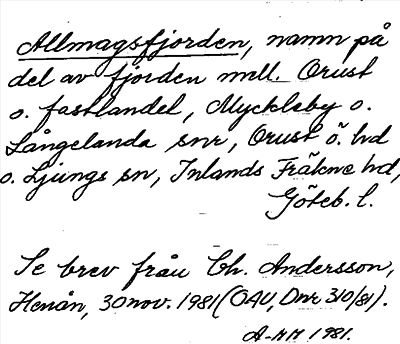 Allmagsfjorden, namn på
del av fjorden mell. Orust
o. fastlandet, Myckleby o.
Långelanda snr, Orust ö. hd
o. Ljungs sn, Inlands Fräkne hd,
Göteb. l.
Se brev från Ch. Andersson,
Henån, 30 nov. 1981 (OAU, Dnr 310/81).
A-MH 1981.